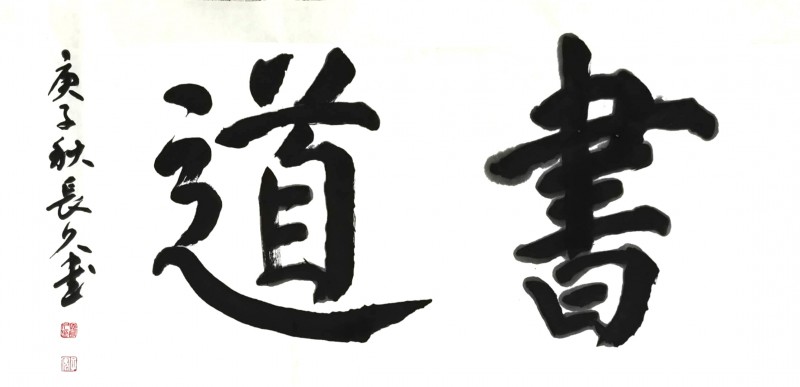 書道
庚子秋長久書